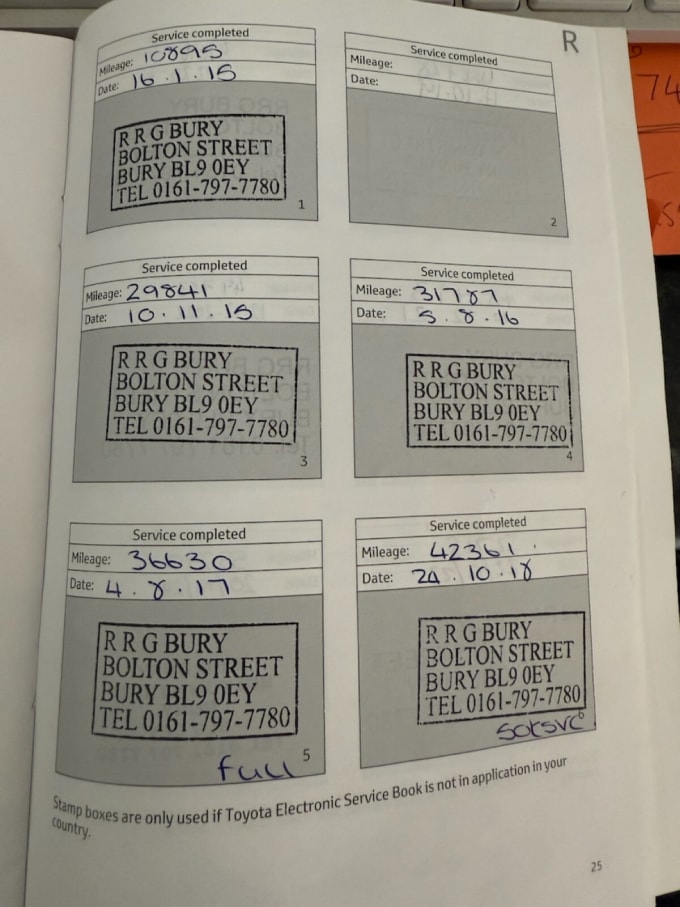 R
Service completed
Mileage: 10895
Date: 16.1.15
R R G BURY
BOLTON STREET
BURY BL9 0EY
TEL 0161-797-7780
1
Service completed
Mileage:
Date:
2
Service completed
Mileage: 29841
Date: 10.11.15
R R G BURY
BOLTON STREET
BURY BL9 0EY
TEL 0161-797-7780
3
Service completed
Mileage: 31787
Date: 5.8.16
R R G BURY
BOLTON STREET
BURY BL9 0EY
TEL 0161-797-7780
4
Service completed
Mileage: 36630
Date: 4.8.17
R R G BURY
BOLTON STREET
BURY BL9 0EY
TEL 0161-797-7780
5
full
Service completed
Mileage: 42361
Date: 24.10.18
R R G BURY
BOLTON STREET
BURY BL9 0EY
TEL 0161-797-7780
6
Stamp boxes are only used if Toyota Electronic Service Book is not in application in your
country.
25
74